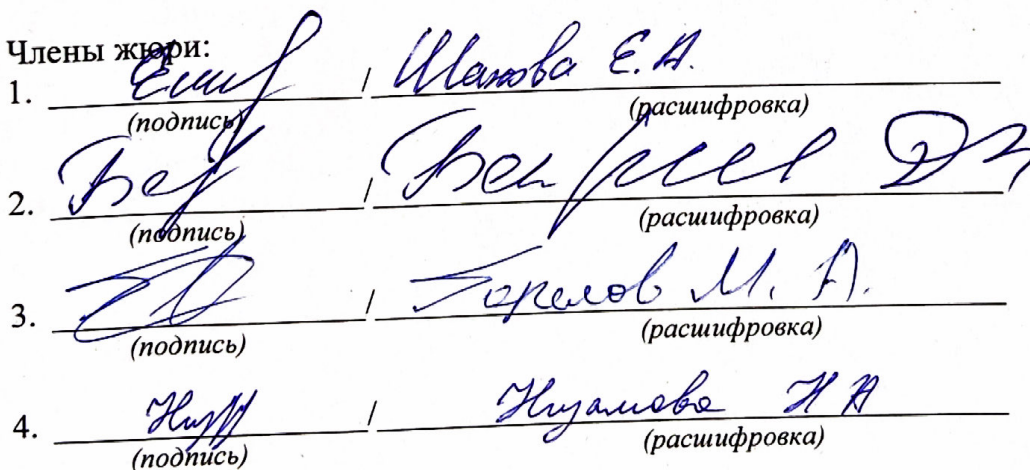 Члены жюри:
1. / Шахова Е.А.
(подпись) (расшифровка)
2. /
(подпись) (расшифровка)
3. / Горелов М. А.
(подпись) (расшифровка)
4. / Низамова Н А
(подпись) (расшифровка)